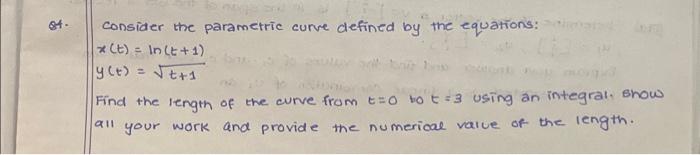 Q4. Consider the parametric curve defined by the equations:
x(t) = ln(t+1)
y(t) = √t+1
Find the length of the curve from t=0 to t=3 using an integral. Show
all your work and provide the numerical value of the length.